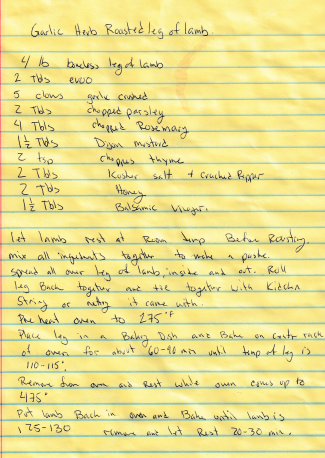 Garlic Herb Roasted leg of lamb.
4 lb boneless leg of lamb
2 Tbls evoo
5 cloves garlic crushed
2 Tbls chopped parsley
4 Tbls chopped Rosemary
1 ½ Tbls Dijon mustard
2 tsp chopped thyme
2 Tbls Kosher salt + Cracked Pepper
2 Tbls Honey
1 ½ Tbls Balsamic Vinegar.
let lamb rest at Room temp Before Roasting.
mix all ingredients together to make a paste.
spread all over leg of lamb, inside and out. Roll
leg Back together and tie together with Kitchen
String or netting it came with.
Pre heat oven to 275°F
Place leg in a Baking Dish and Bake on Center rack
of oven for about 60-90 min until temp of leg is
110-115°.
Remove from oven and Rest while oven comes up to
475°
Put lamb Back in oven and Bake until lamb is
125-130 remove and let Rest 20-30 min.